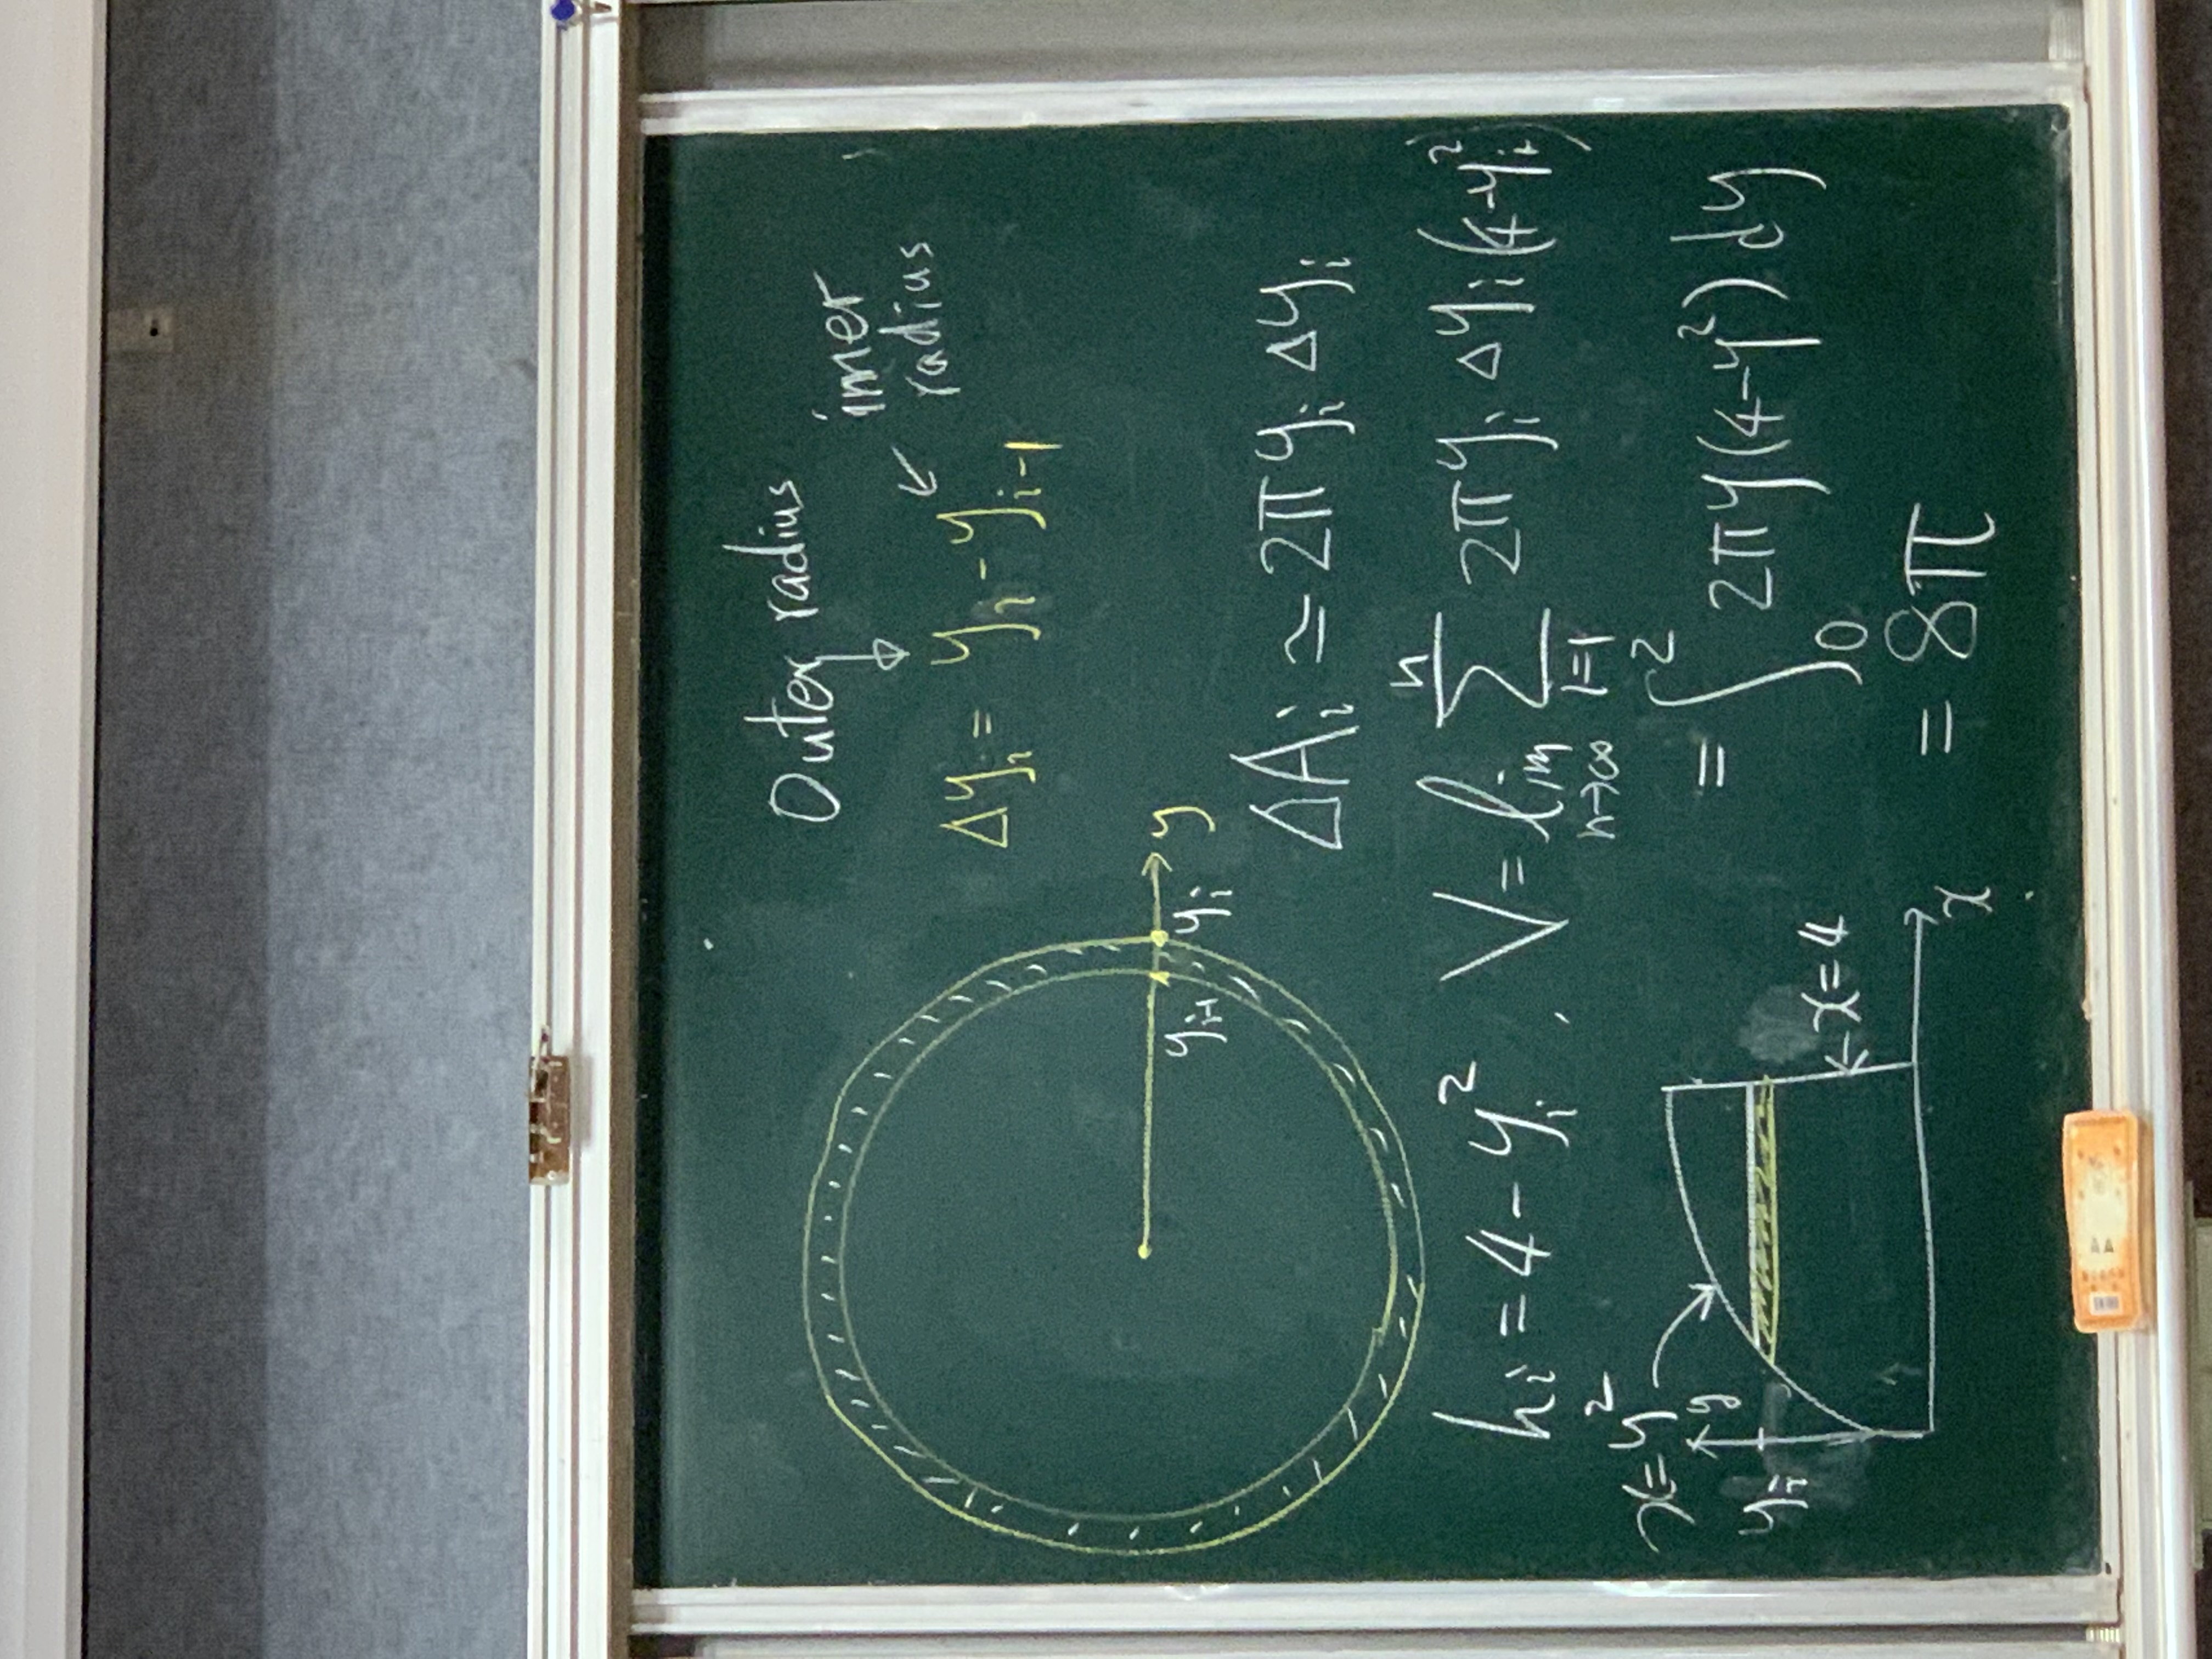 Outer radius
inner
radius
Δyᵢ = yᵢ - yᵢ₋₁
y
yᵢ₋₁ yᵢ
ΔAᵢ ≃ 2π yᵢ Δyᵢ
hᵢ = 4 - yᵢ² . V = lim n→∞ n Σ i=1 2π yᵢ Δyᵢ (4-yᵢ²)
= ∫₀² 2π y (4-y²) dy
= 8π
x=y²
y
yᵢ
x=4
x